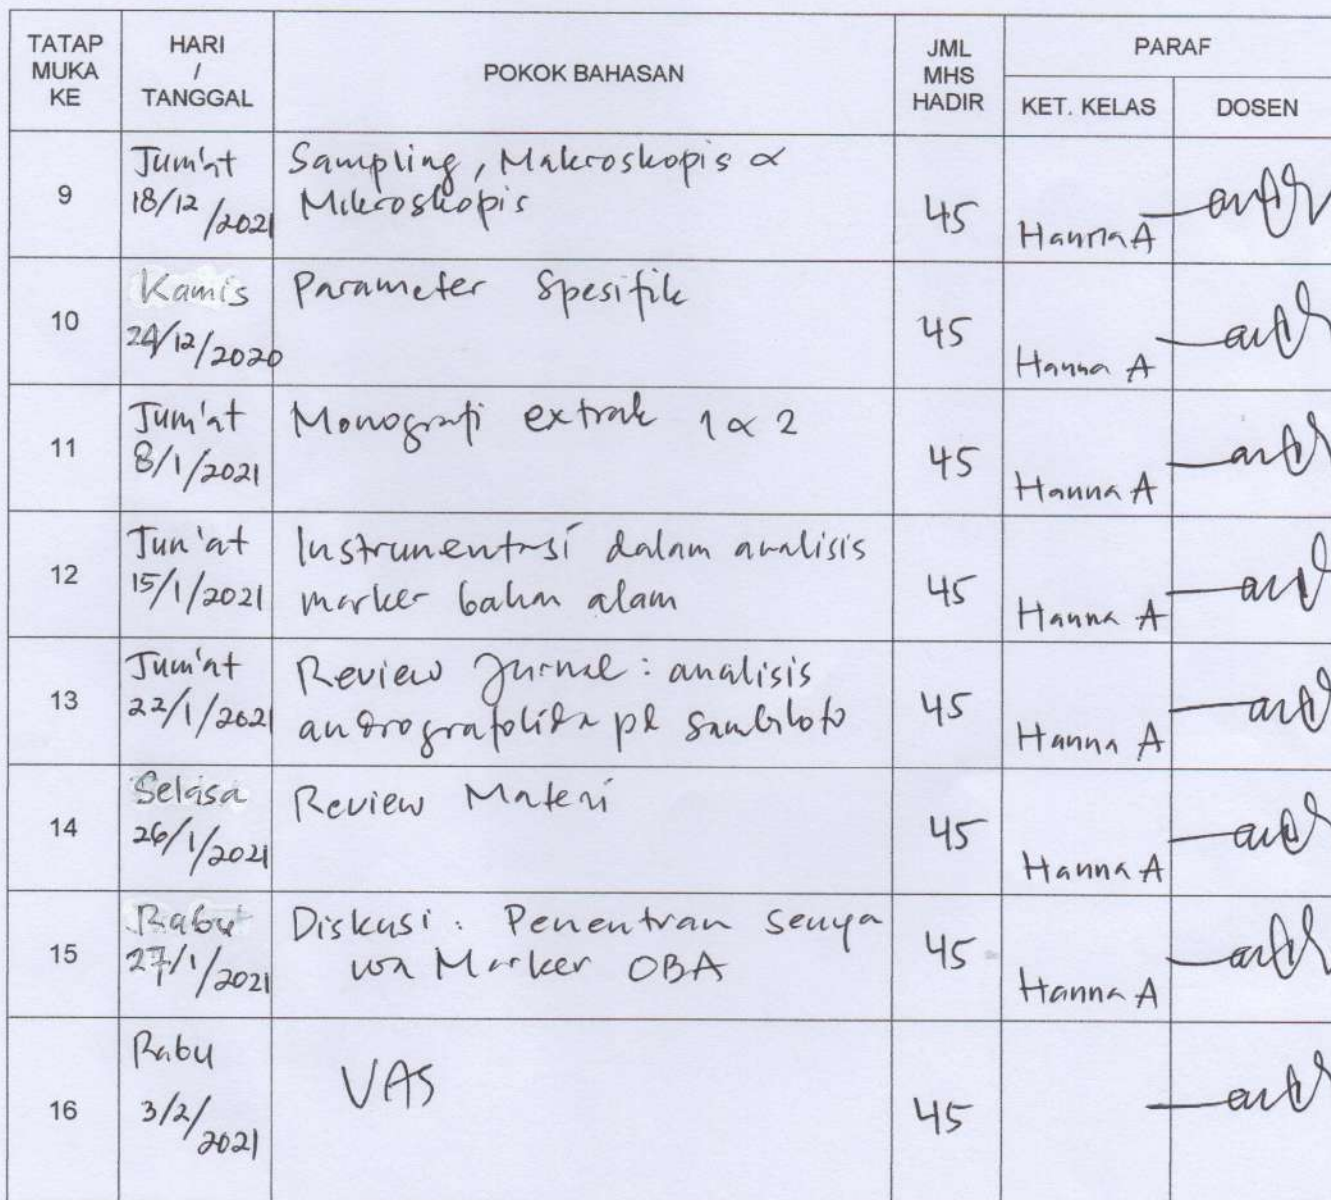 TATAP MUKA KE | HARI / TANGGAL | POKOK BAHASAN | JML MHS HADIR | PARAF
KET. KELAS | DOSEN
9 | Jum'at 18/12/2021 | Sampling, Makroskopis & Mikroskopis | 45 | Hanna A
10 | Kamis 24/12/2020 | Parameter Spesifik | 45 | Hanna A
11 | Jum'at 8/1/2021 | Monografi extrak 1 & 2 | 45 | Hanna A
12 | Jum'at 15/1/2021 | Instrumentasi dalam analisis marker bahan alam | 45 | Hanna A
13 | Jum'at 22/1/2021 | Review Jurnal : analisis andrografolida pd sambiloto | 45 | Hanna A
14 | Selasa 26/1/2021 | Review Materi | 45 | Hanna A
15 | Rabu 27/1/2021 | Diskusi : Penentuan senyawa Marker OBA | 45 | Hanna A
16 | Rabu 3/2/2021 | UAS | 45